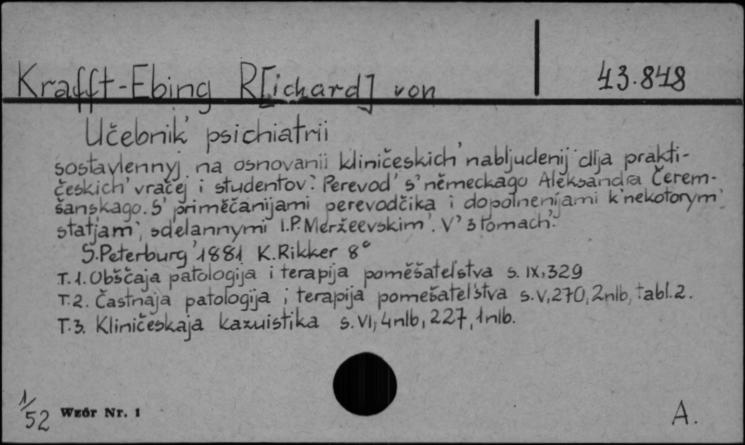 Krafft-Ebing R[ichard] von
43.848
Učebnik' psichiatrii
sostavlennyj na osnovanii kliničeskich' nabljudenij dlja prakti-
českich' vračej i studentov'. Perevod' s' německago Aleksandra Čerem-
šanskago. S' priměčanijami perevodčika i dopolnenijami k' někotorym'
statjam', sdelannymi I.P. Meržeevskim'. V' 3 tomach'.
S. Peterburg' 1881 K. Rikker 8°
T.1. Obščaja patologija i terapija poměšatel'stva s. IX, 329
T.2. Častnaja patologija i terapija pomešatel'stva s. V, 270, 2nlb, tabl. 2.
T.3. Kliničeskaja kazuistika s. VI, 4nlb, 227, 1nlb.
1/52 Wzór Nr. 1
A.